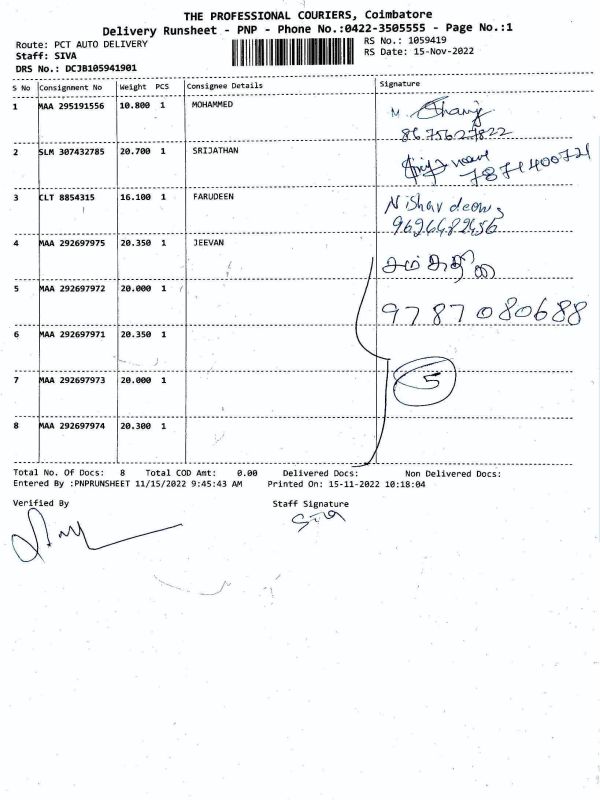 THE PROFESSIONAL COURIERS, Coimbatore
Delivery Runsheet - PNP - Phone No.:0422-3505555 - Page No.:1
Route: PCT AUTO DELIVERY
Staff: SIVA
DRS No.: DCJB105941901
RS No.: 1059419
RS Date: 15-Nov-2022
S No Consignment No Weight PCS Consignee Details Signature
1 MAA 295191556 10.800 1 MOHAMMED
8675627822
2 SLM 307432785 20.700 1 SRIJATHAN
7871400721
3 CLT 8854315 16.100 1 FARUDEEN
9626482456
4 MAA 292697975 20.350 1 JEEVAN
5 MAA 292697972 20.000 1
9787080688
6 MAA 292697971 20.350 1
7 MAA 292697973 20.000 1
5
8 MAA 292697974 20.300 1
Total No. Of Docs: 8 Total COD Amt: 0.00 Delivered Docs: Non Delivered Docs:
Entered By :PNPRUNSHEET 11/15/2022 9:45:43 AM Printed On: 15-11-2022 10:18:04
Verified By Staff Signature
Siva